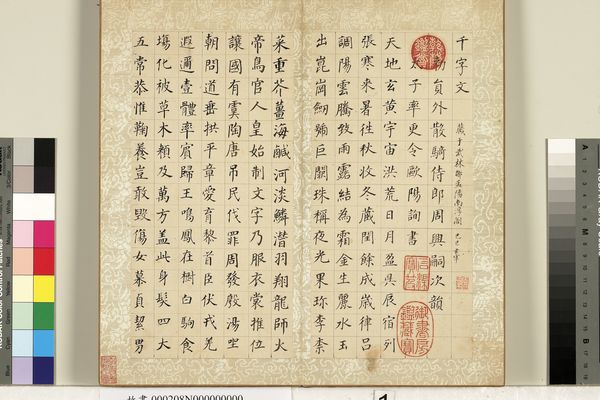 千字文
勅員外散騎侍郎周興嗣次韻
子率更令歐陽詢書
天地玄黃宇宙洪荒日月盈昃辰宿列
張寒來暑往秋收冬藏閏餘成歲律呂
調陽雲騰致雨露結為霜金生麗水玉
出崑崗劒號巨闕珠稱夜光果珍李柰
菜重芥薑海鹹河淡鱗潛羽翔龍師火
帝鳥官人皇始制文字乃服衣裳推位
讓國有虞陶唐弔民伐罪周發殷湯坐
朝問道垂拱平章愛育黎首臣伏戎羌
遐邇壹體率賓歸王鳴鳳在樹白駒食
場化被草木賴及萬方蓋此身髮四大
五常恭惟鞠養豈敢毀傷女慕貞絜男
故書 000208N000000000